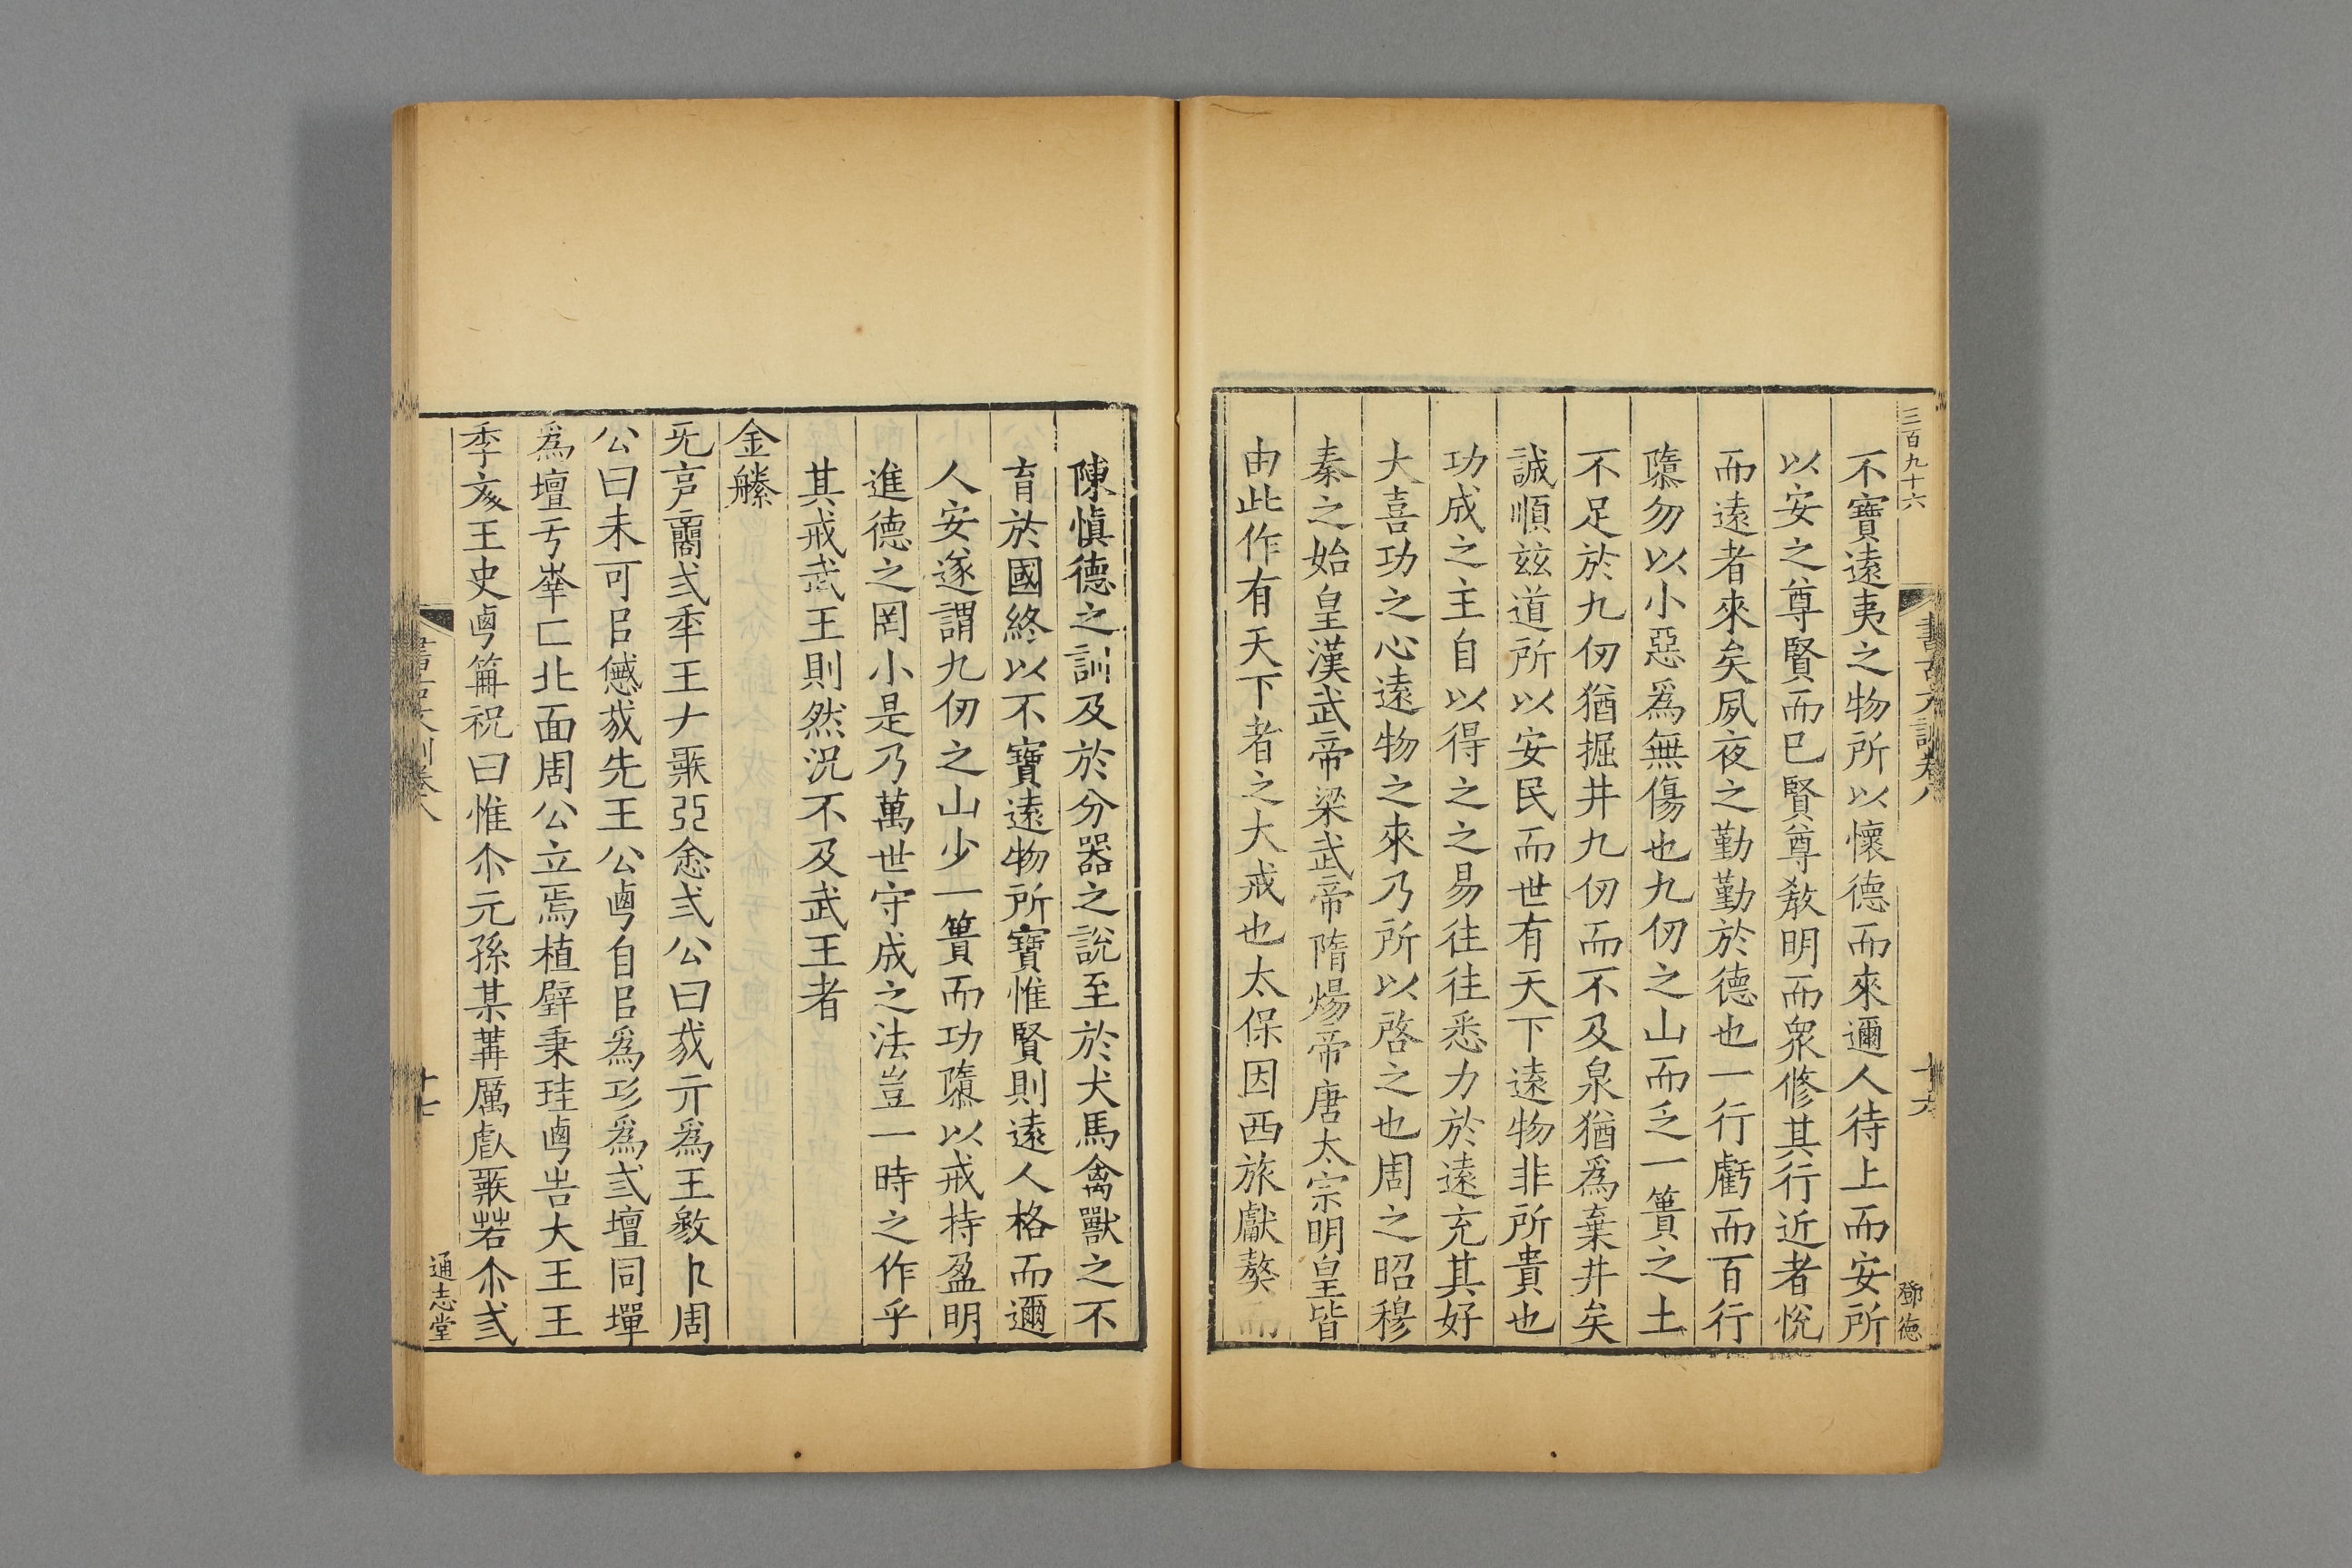 三百九十六
書古文訓卷八
十六
鄧德
不寶遠夷之物所以懷德而來邇人待上而安所
以安之尊賢而已賢尊教明而衆修其行近者悅
而遠者來矣夙夜之勤勤於德也一行虧而百行
隳勿以小惡爲無傷也九仞之山而乏一簣之土
不足於九仞猶掘井九仞而不及泉猶爲棄井矣
誠順兹道所以安民而世有天下遠物非所貴也
功成之主自以得之之易往往悉力於遠充其好
大喜功之心遠物之來乃所以啓之也周之昭穆
秦之始皇漢武帝梁武帝隋煬帝唐太宗明皇皆
由此作有天下者之大戒也太保因西旅獻獒而
陳愼德之訓及於分器之說至於犬馬禽獸之不
育於國終以不寶遠物所寶惟賢則遠人格而邇
人安遂謂九仞之山少一簣而功隳以戒持盈明
進德之罔小是乃萬世守成之法豈一時之作乎
其戒武王則然況不及武王者
金縢
旡亯商弍秊王ナ𤻲亞念弍公曰𢦓亓爲王敹卜周
公曰未可㠯慽𢦓先王公𠧟自㠯爲㓛爲弎壇同墠
爲壇亐𡴎匚北面周公立焉植璧秉珪𠧟告大王王
季㚅王史𠧟篇祝曰惟尒元孫某冓厲虐𤻲若尒弎
書古文訓卷八
十七
通志堂